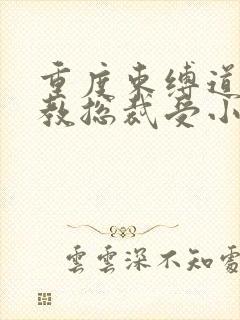 重度束缚道
教总裁受小
雲雲深不知處